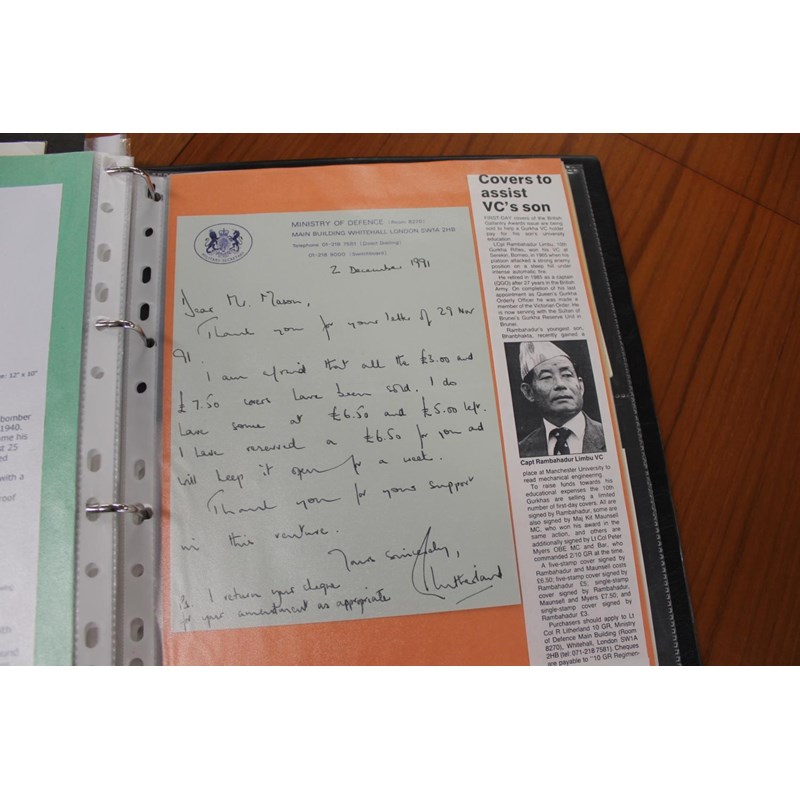 MINISTRY OF DEFENCE (Room 8270)
MAIN BUILDING WHITEHALL LONDON SW1A 2HB
Telephone 01-218 7581 (Direct Dialling)
01-218 9000 (Switchboard)
MILITARY SECRETARY
2 December 1991
Dear Mr. Mason,
Thank you for your letter of 29 Nov
91.
I am afraid that all the £3.00 and
£7.50 covers have been sold. I do
have some at £6.50 and £5.00 left.
I have reserved a £6.50 for you and
will keep it open for a week.
Thank you for your support
in this venture.
Yours sincerely,
Litherland
Ps. I return your cheque
for your amendment as appropriate
Covers to
assist
VC's son
FIRST-DAY covers of the British
Gallantry Awards issue are being
sold to help a Gurkha VC holder
pay for his son's university
education.
LCpl Rambahadur Limbu, 10th
Gurkha Rifles, won his VC at
Serekin, Borneo, in 1965 when his
platoon attacked a strong enemy
position on a steep hill under
intense automatic fire.
He retired in 1985 as a captain
(QGO) after 27 years in the British
Army. On completion of his last
appointment as Queen's Gurkha
Orderly Officer he was made a
member of the Victorian Order. He
is now serving with the Sultan of
Brunei's Gurkha Reserve Unit in
Brunei.
Rambahadur's youngest son,
Bhanbhakta, recently gained a
Capt Rambahadur Limbu VC
place at Manchester University to
read mechanical engineering.
To raise funds towards his
educational expenses the 10th
Gurkhas are selling a limited
number of first-day covers. All are
signed by Rambahadur, some are
also signed by Maj Kit Maunsell
MC, who won his award in the
same action, and others are
additionally signed by Lt Col Peter
Myers OBE MC and Bar, who
commanded 2/10 GR at the time.
A five-stamp cover signed by
Rambahadur and Maunsell costs
£6.50; five-stamp cover signed by
Rambahadur £5; single-stamp
cover signed by Rambahadur,
Maunsell and Myers £7.50; and
single-stamp cover signed by
Rambahadur £3.
Purchasers should apply to Lt
Col R Litherland 10 GR, Ministry
of Defence Main Building (Room
8270), Whitehall, London SW1A
2HB (tel: 071-218 7581). Cheques
are payable to "10 GR Regimen-
e: 12" x 10"
bomber
1940.
me his
t 25
ed
with a
roof
wing
with
und